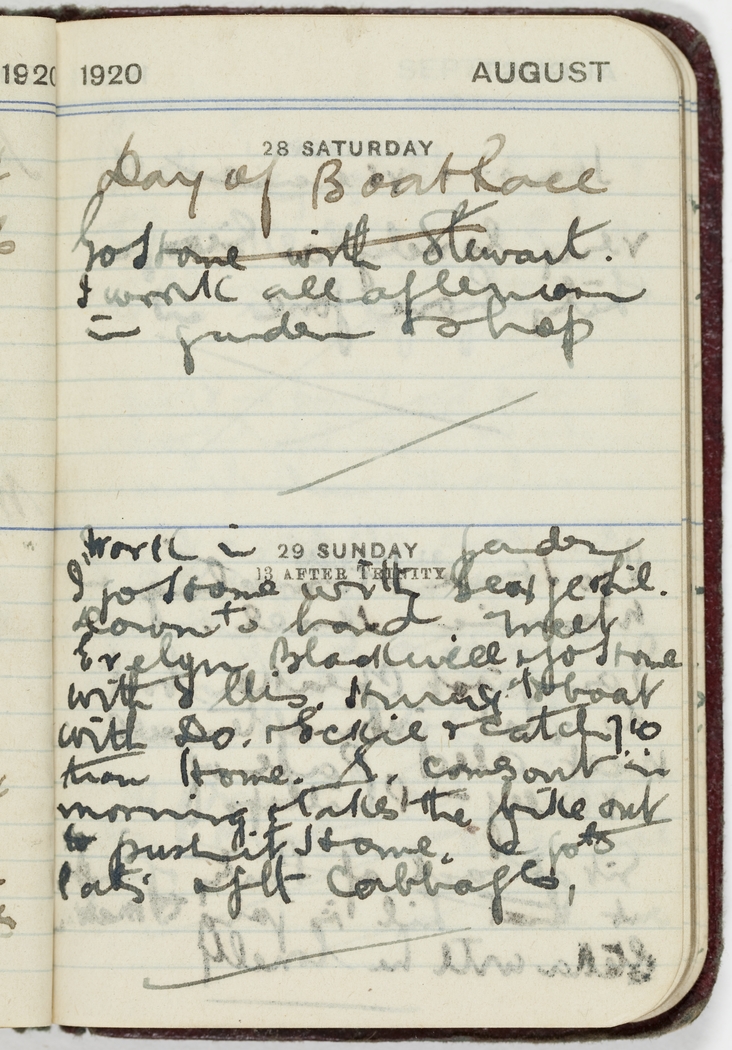 1920 1920 AUGUST
28 SATURDAY
Day of Boat Race
Go Home with Stewart.
I work all afternoon
in garden & shop
Work in garden
29 SUNDAY
13 AFTER TRINITY
I go Home with
Down to band meet
Evelyn Blackwell & go Home
with Ellis. Hurry to boat
with Do. & Eckie & catch 7.10
tram Home. S. comes out in
morning & takes the bike out
to push it Home. & go to
Pat's aft Cabbages,